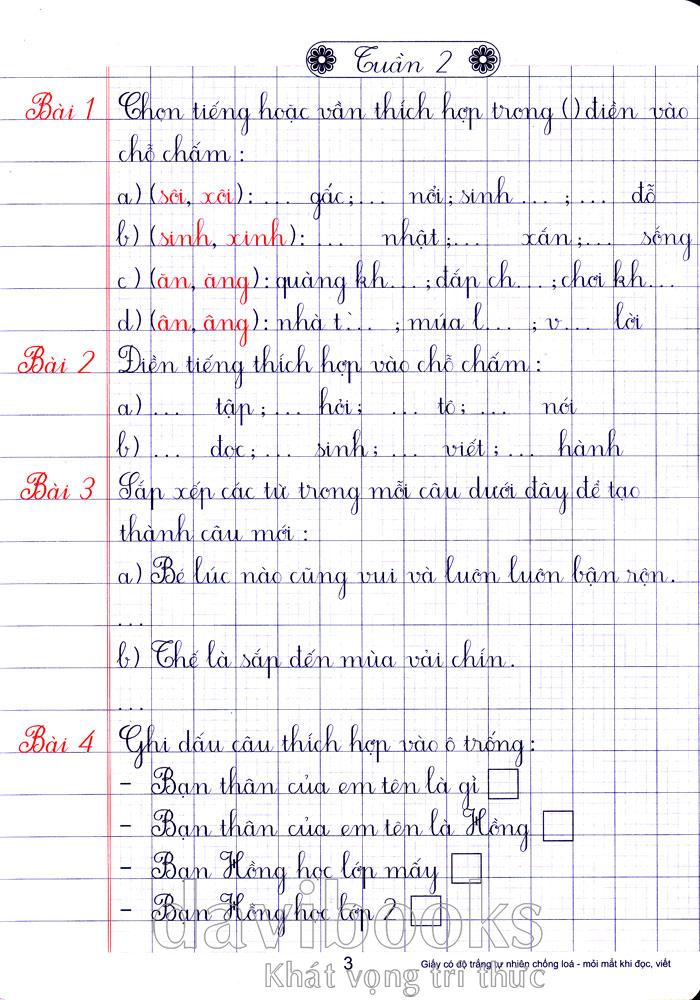 Tuần 2
Bài 1 Chọn tiếng hoặc vần thích hợp trong ( ) điền vào
chỗ chấm :
a) (sôi, xôi): ... gấc; ... nổi; sinh ... ; ... đỗ
b) (sinh, xinh): ... nhật; ... xắn; ... sống
c) (ăn, ăng): quàng kh... ; đắp ch... ; chơi kh...
d) (ân, âng): nhà t`... ; múa l... ; v... lời
Bài 2 Điền tiếng thích hợp vào chỗ chấm :
a) ... tập ; ... hỏi; ... tô; ... nói
b) ... đọc; ... sinh; ... viết; ... hành
Bài 3 Sắp xếp các từ trong mỗi câu dưới đây để tạo
thành câu mới :
a) Bé lúc nào cũng vui và luôn luôn bận rộn.
...
b) Thế là sắp đến mùa vải chín.
...
Bài 4 Ghi dấu câu thích hợp vào ô trống:
- Bạn thân của em tên là gì
- Bạn thân của em tên là Hồng
- Bạn Hồng học lớp mấy
- Bạn Hồng học lớp 2
davibooks
3 Giấy có độ trắng tự nhiên chống loá - mỏi mắt khi đọc, viết
Khát vọng tri thức